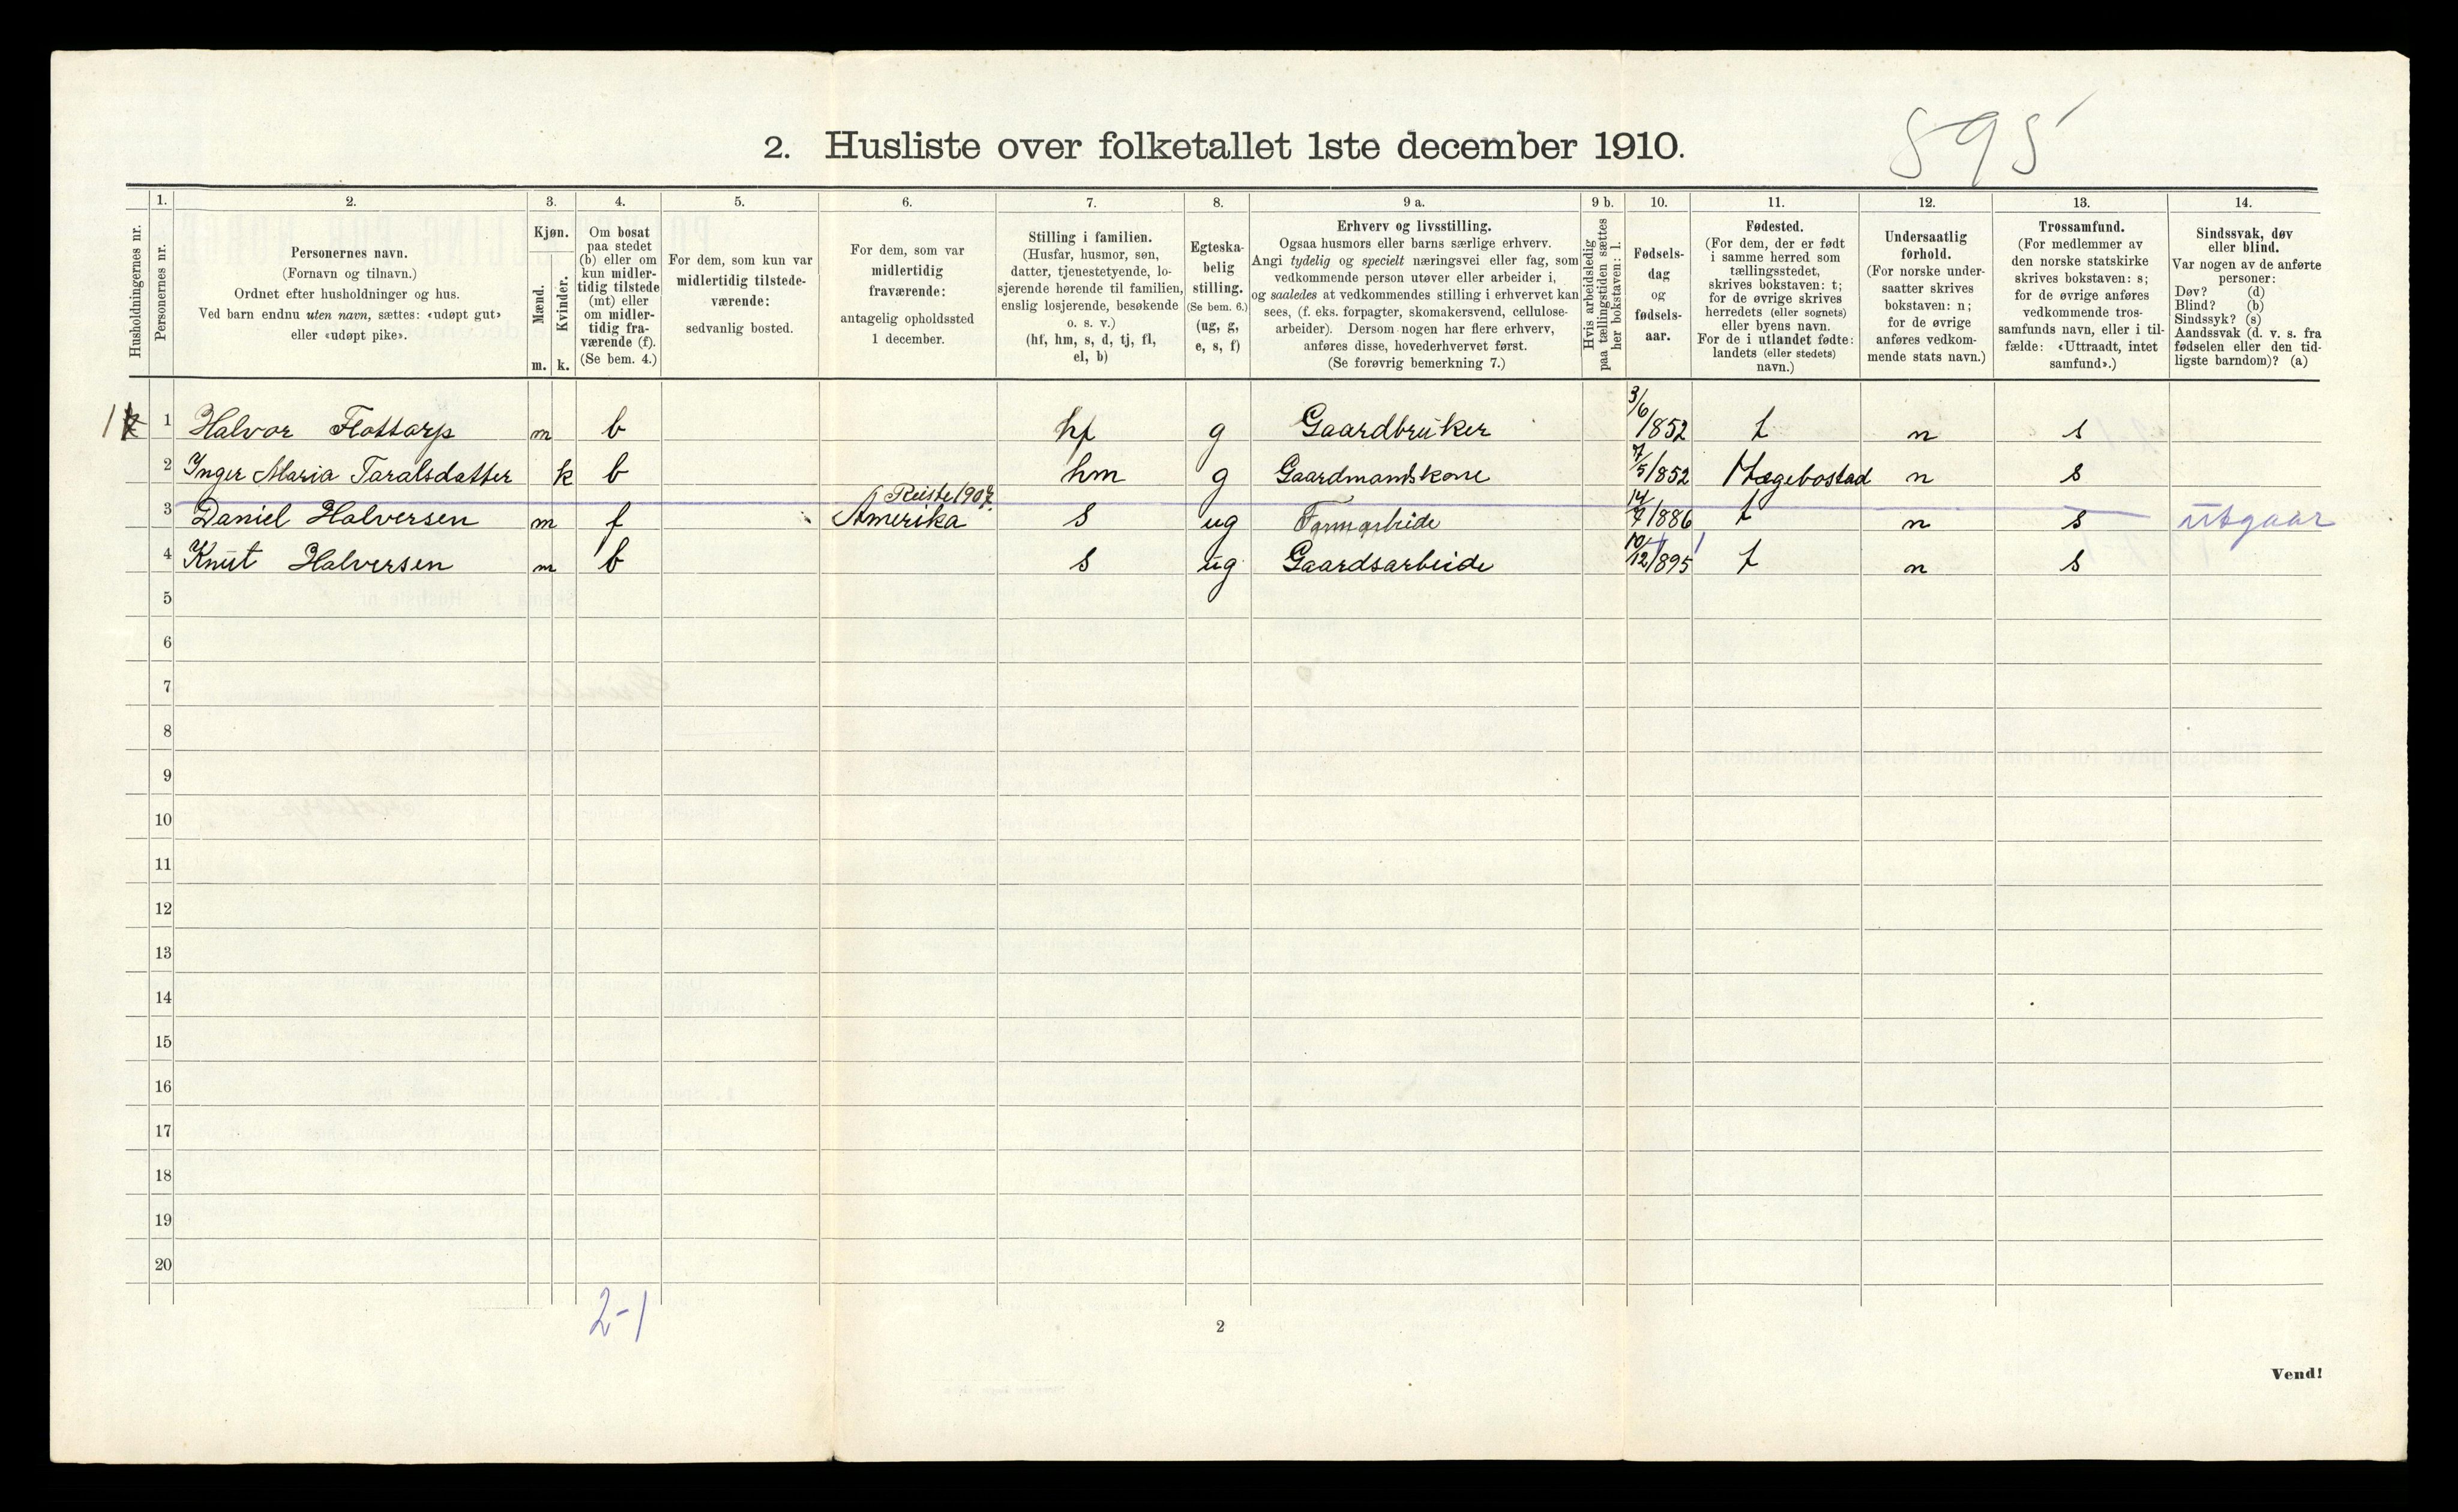 895
2. Husliste over folketallet 1ste december 1910.
Husholdningernes nr.
1. Personernes nr.
2. Personernes navn.
(Fornavn og tilnavn.)
Ordnet efter husholdninger og hus.
Ved barn endnu uten navn, sættes: «udøpt gut»
eller «udøpt pike».
3. Kjøn.
Mænd. m.
Kvinder. k.
4. Om bosat
paa stedet
(b) eller om
kun midler-
tidig tilstede
(mt) eller
om midler-
tidig fra-
værende (f).
(Se bem. 4.)
5. For dem, som kun var
midlertidig tilstede-
værende:
sedvanlig bosted.
6. For dem, som var
midlertidig
fraværende:
antagelig opholdssted
1 december.
7. Stilling i familien.
(Husfar, husmor, søn,
datter, tjenestetyende, lo-
sjerende hørende til familien,
enslig losjerende, besøkende
o. s. v.)
(hf, hm, s, d, tj, fl,
el, b)
8. Egteska-
belig
stilling.
(Se bem. 6.)
(ug, g,
e, s, f)
9 a. Erhverv og livsstilling.
Ogsaa husmors eller barns særlige erhverv.
Angi tydelig og specielt næringsvei eller fag, som
vedkommende person utøver eller arbeider i,
og saaledes at vedkommendes stilling i erhvervet kan
sees, (f. eks. forpagter, skomakersvend, cellulose-
arbeider). Dersom nogen har flere erhverv,
anføres disse, hovederhvervet først.
(Se forøvrig bemerkning 7.)
9 b. Hvis arbeidsledig
paa tællingstiden sættes
her bokstaven: l.
10. Fødsels-
dag
og
fødsels-
aar.
11. Fødested.
(For dem, der er født
i samme herred som
tællingsstedet,
skrives bokstaven: t;
for de øvrige skrives
herredets (eller sognets)
eller byens navn.
For de i utlandet fødte:
landets (eller stedets)
navn.)
12. Undersaatlig
forhold.
(For norske under-
saatter skrives
bokstaven: n;
for de øvrige
anføres vedkom-
mende stats navn.)
13. Trossamfund.
(For medlemmer av
den norske statskirke
skrives bokstaven: s;
for de øvrige anføres
vedkommende tros-
samfunds navn, eller i til-
fælde: «Uttraadt, intet
samfund».)
14. Sindssvak, døv
eller blind.
Var nogen av de anførte
personer:
Døv? (d)
Blind? (b)
Sindssyk? (s)
Aandssvak (d. v. s. fra
fødselen eller den tid-
ligste barndom)? (a)
1 1 Halvor Flottorp m b hf g Gaardbruker 3/6 /852 t n s
2 Inger Maria Taralsdatter k b hm g Gaardmandskone 7/5/852 Hægebostad n s
Reiste 1907.
3 Daniel Halversen m f Amerika s ug Farmarbeide 14/7/886 t n s utgaar
4 Knut Halversen m b s ug Gaardsarbeide 10/12/895 t n s
5
6
7
8
9
10
11
12
13
14
15
16
17
18
19
20
2-1
2
Vend!